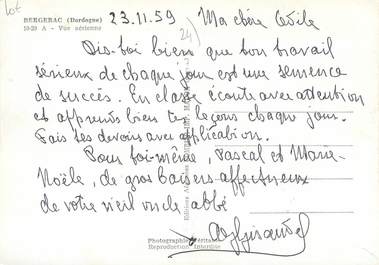 lot
BERGERAC (Dordogne)
10-29 A - Vue aérienne
23.11.59
24)
Ma chère Cécile
Dis-toi bien que ton travail
sérieux de chaque jour est une semence
de succès. En classe écoute avec attention
et apprends bien tes leçons chaque jour.
Fais tes devoirs avec application.
Pour toi-même, Pascal et Marie-
Noële, de gros baisers affectueux
de votre vieil oncle abbé
Photographie Véritable
Reproduction Interdite
Editions